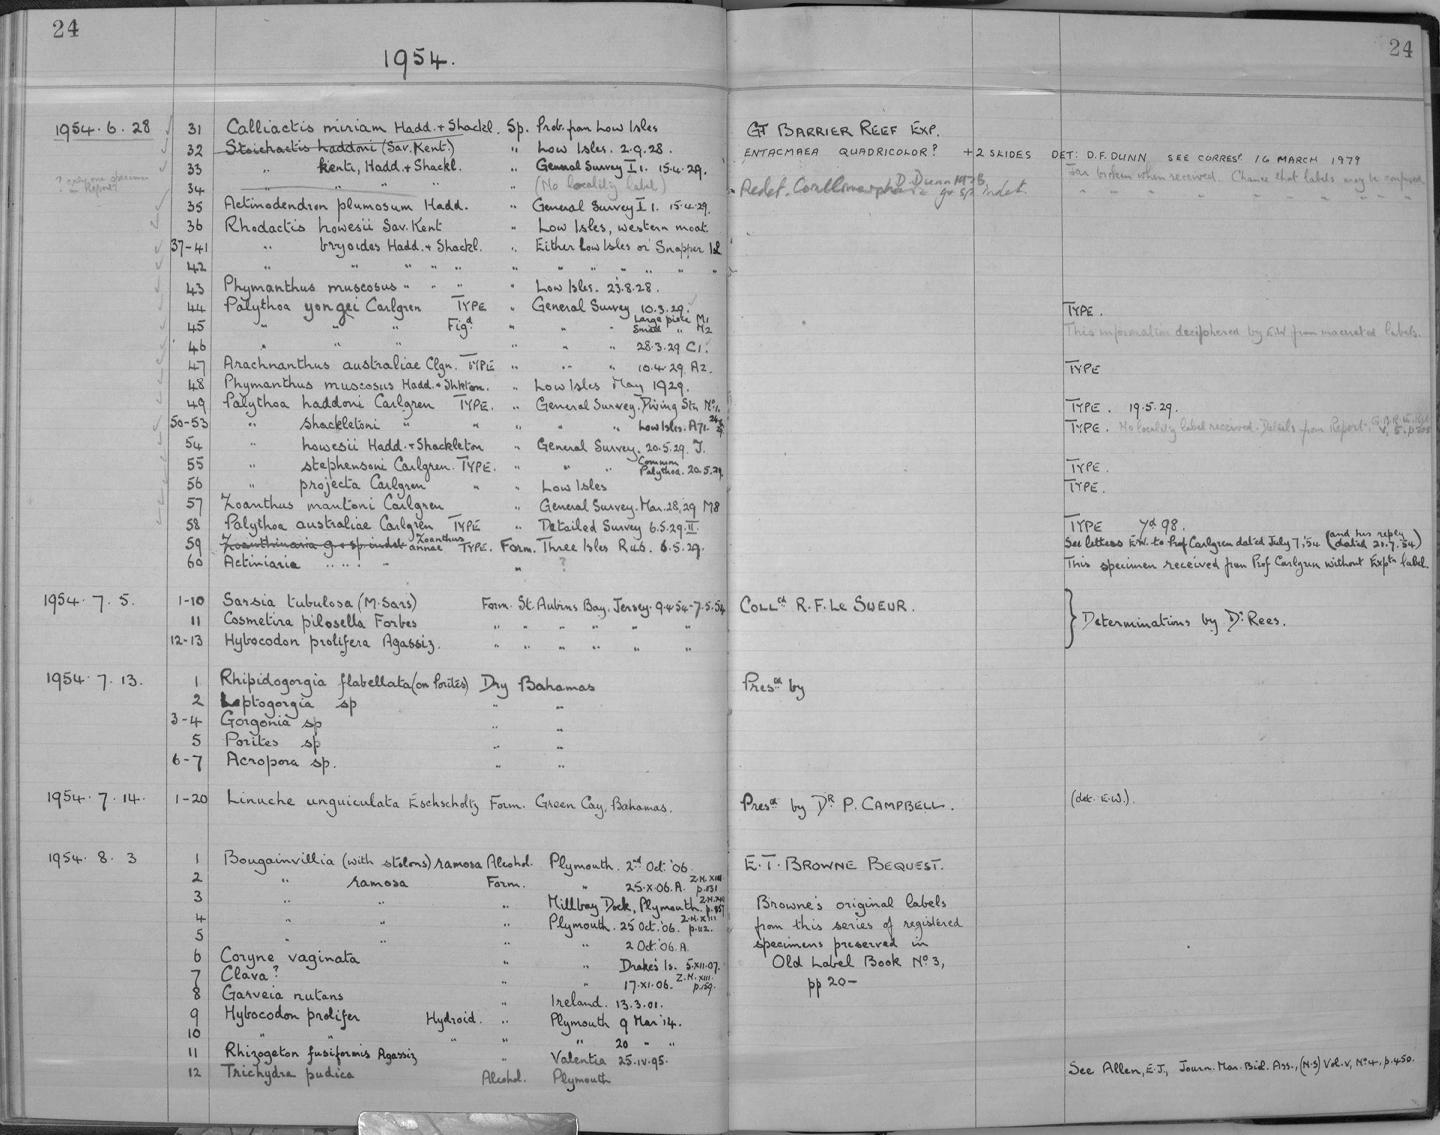 24
24
1954.
1954.6.28 31 Calliactis miriam Hadd. + Shackl. Sp. Prob. from Low Isles GT BARRIER REEF EXP.
32 Stoichactis haddoni (Sav. Kent.) " Low Isles. 2.9.28. ENTACMAEA QUADRICOLOR? + 2 SLIDES DET: D.F. DUNN SEE CORRESᵉ 16 MARCH 1979
33 " kenti, Hadd. + Shackl. " General Survey I 1. 15.4.29. Jar broken when received. Chance that labels may be confused
? only one specimen in Report?
34 " " " " (No locality label) Redet. Corallimorpharia g. sp. indet. D. Dunn
35 Actinodendron plumosum Hadd. " General Survey I 1. 15.4.29.
36 Rhodactis howesii Sav. Kent " Low Isles, western moat
37-41 " bryoides Hadd. + Shackl. " Either Low Isles or Snapper Isl
42 " " " " " " " " " " " "
43 Phymanthus muscosus " " " " Low Isles. 23.8.28.
44 Palythoa yongei Carlgren TYPE " General Survey 10.3.29. TYPE.
45 " " " Figᵈ " " " Large piece M1 Small " M2 This information deciphered by E.W. from macerated labels.
46 " " " " " " 28.3.29 C1.
47 Arachnanthus australiae Clgn. TYPE " " " 10.4.29. A2. TYPE
48 Phymanthus muscosus Hadd. + Shkltn. " Low Isles May 1929.
49 Palythoa haddoni Carlgren TYPE. " General Survey. Diving Stn Nº 1. TYPE. 19.5.29.
50-53 " shackletoni " " " " " Low Isles. A71. TYPE. No locality label received. Details from Report. G.B.R.E. Rept V, 5.
54 " howesii Hadd. + Shackleton " General Survey. 20.5.29. J.
55 " stephensoni Carlgren. TYPE. " " " Common Palythoa. 20.5.29. TYPE.
56 " projecta Carlgren " " Low Isles TYPE.
57 Zoanthus mantoni Carlgren " General Survey. Mar. 28, 29 M8
58 Palythoa australiae Carlgren TYPE " Detailed Survey 6.5.29. II. TYPE Yᵈ 98.
59 Zoanthinaria g. + sp. indet. Zoanthus annae TYPE. Form. Three Isles R46. 6.5.29. See letters E.W. to Prof Carlgren dated July 7, '54 (and his reply dated 21.7.'54)
60 Actiniaria " " ! " " ? This specimen received from Prof Carlgren without Exptn label.
1954.7.5. 1-10 Sarsia tubulosa (M. Sars) Form. St. Aubins Bay, Jersey. 9.4.54-7.5.54 COLLᵈ R.F. LE SUEUR.
11 Cosmetira pilosella Forbes " " " " " " Determinations by Dʳ Rees.
12-13 Hybocodon prolifera Agassiz. " " " " " "
1954.7.13. 1 Rhipidogorgia flabellata (on Porites) Dry Bahamas Presᵈ by
2 Leptogorgia sp " "
3-4 Gorgonia sp " "
5 Porites sp " "
6-7 Acropora sp. " "
1954.7.14. 1-20 Linuche unguiculata Eschscholtz Form. Green Cay, Bahamas. Presᵈ by Dᴿ P. CAMPBELL. (det. E.W.).
1954.8.3 1 Bougainvillia (with stolons) ramosa Alcohol. Plymouth. 2ⁿᵈ Oct. '06. E.T. BROWNE BEQUEST.
2 " ramosa Form. " 25.X.06. A. Z.N. XIII p.131
3 " " " Millbay Dock, Plymouth. Browne's original labels
4 " " " Plymouth. 25 Oct. '06. Z.N. XIII p.112. from this series of registered
5 " " " " 2 Oct. '06. A. specimens preserved in
6 Coryne vaginata " " Drake's Is. 5.XII.07. Old Label Book Nº 3,
7 Clava? " " 17.XI.06. Z.N. XIII. p.159. pp 20-
8 Garveia nutans " Ireland. 13.3.01.
9 Hybocodon prolifer Hydroid. " Plymouth 9 Mar '14.
10 " " " " " 20 " "
11 Rhizogeton fusiformis Agassiz " Valentia 25.IV.95.
12 Trichydra pudica Alcohol. Plymouth See Allen, E.J., Journ. Mar. Biol. Ass., (N.S) Vol. V, Nº 4, p.450.